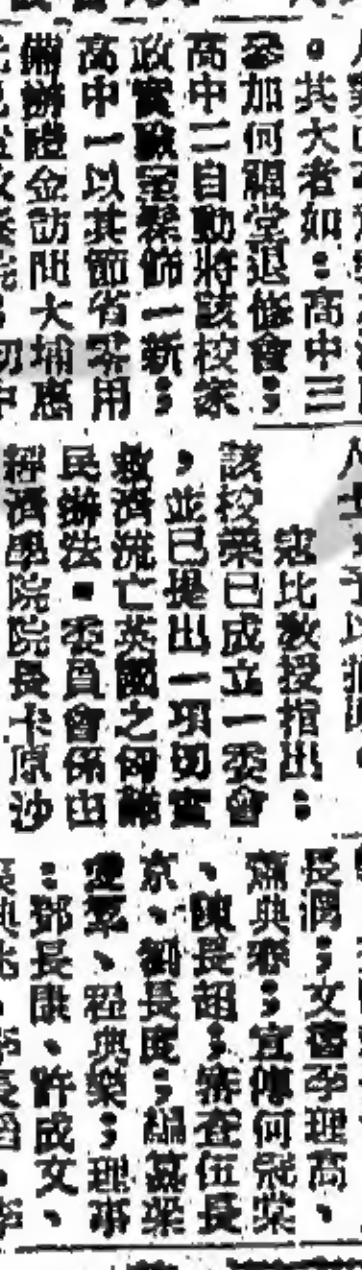 。其大者如：高中三
參加何福堂退修會；
高中二自動將該校家
政實驗室髹飾一新；
高中一以其節省零用
備辦禮金訪問大埔惠
寇比教授指出：
該校業已成立一委會
，並已提出一項切實
救濟流亡英國之匈難
民辦法。委員會係由
經濟學院院長卡原沙
長潤；文書李理高、
蕭典；宣傳何冠棠
、陳長超；審查伍長
京、劉長度；編纂梁
、程典樂；理事
：鄧長康、許成文、